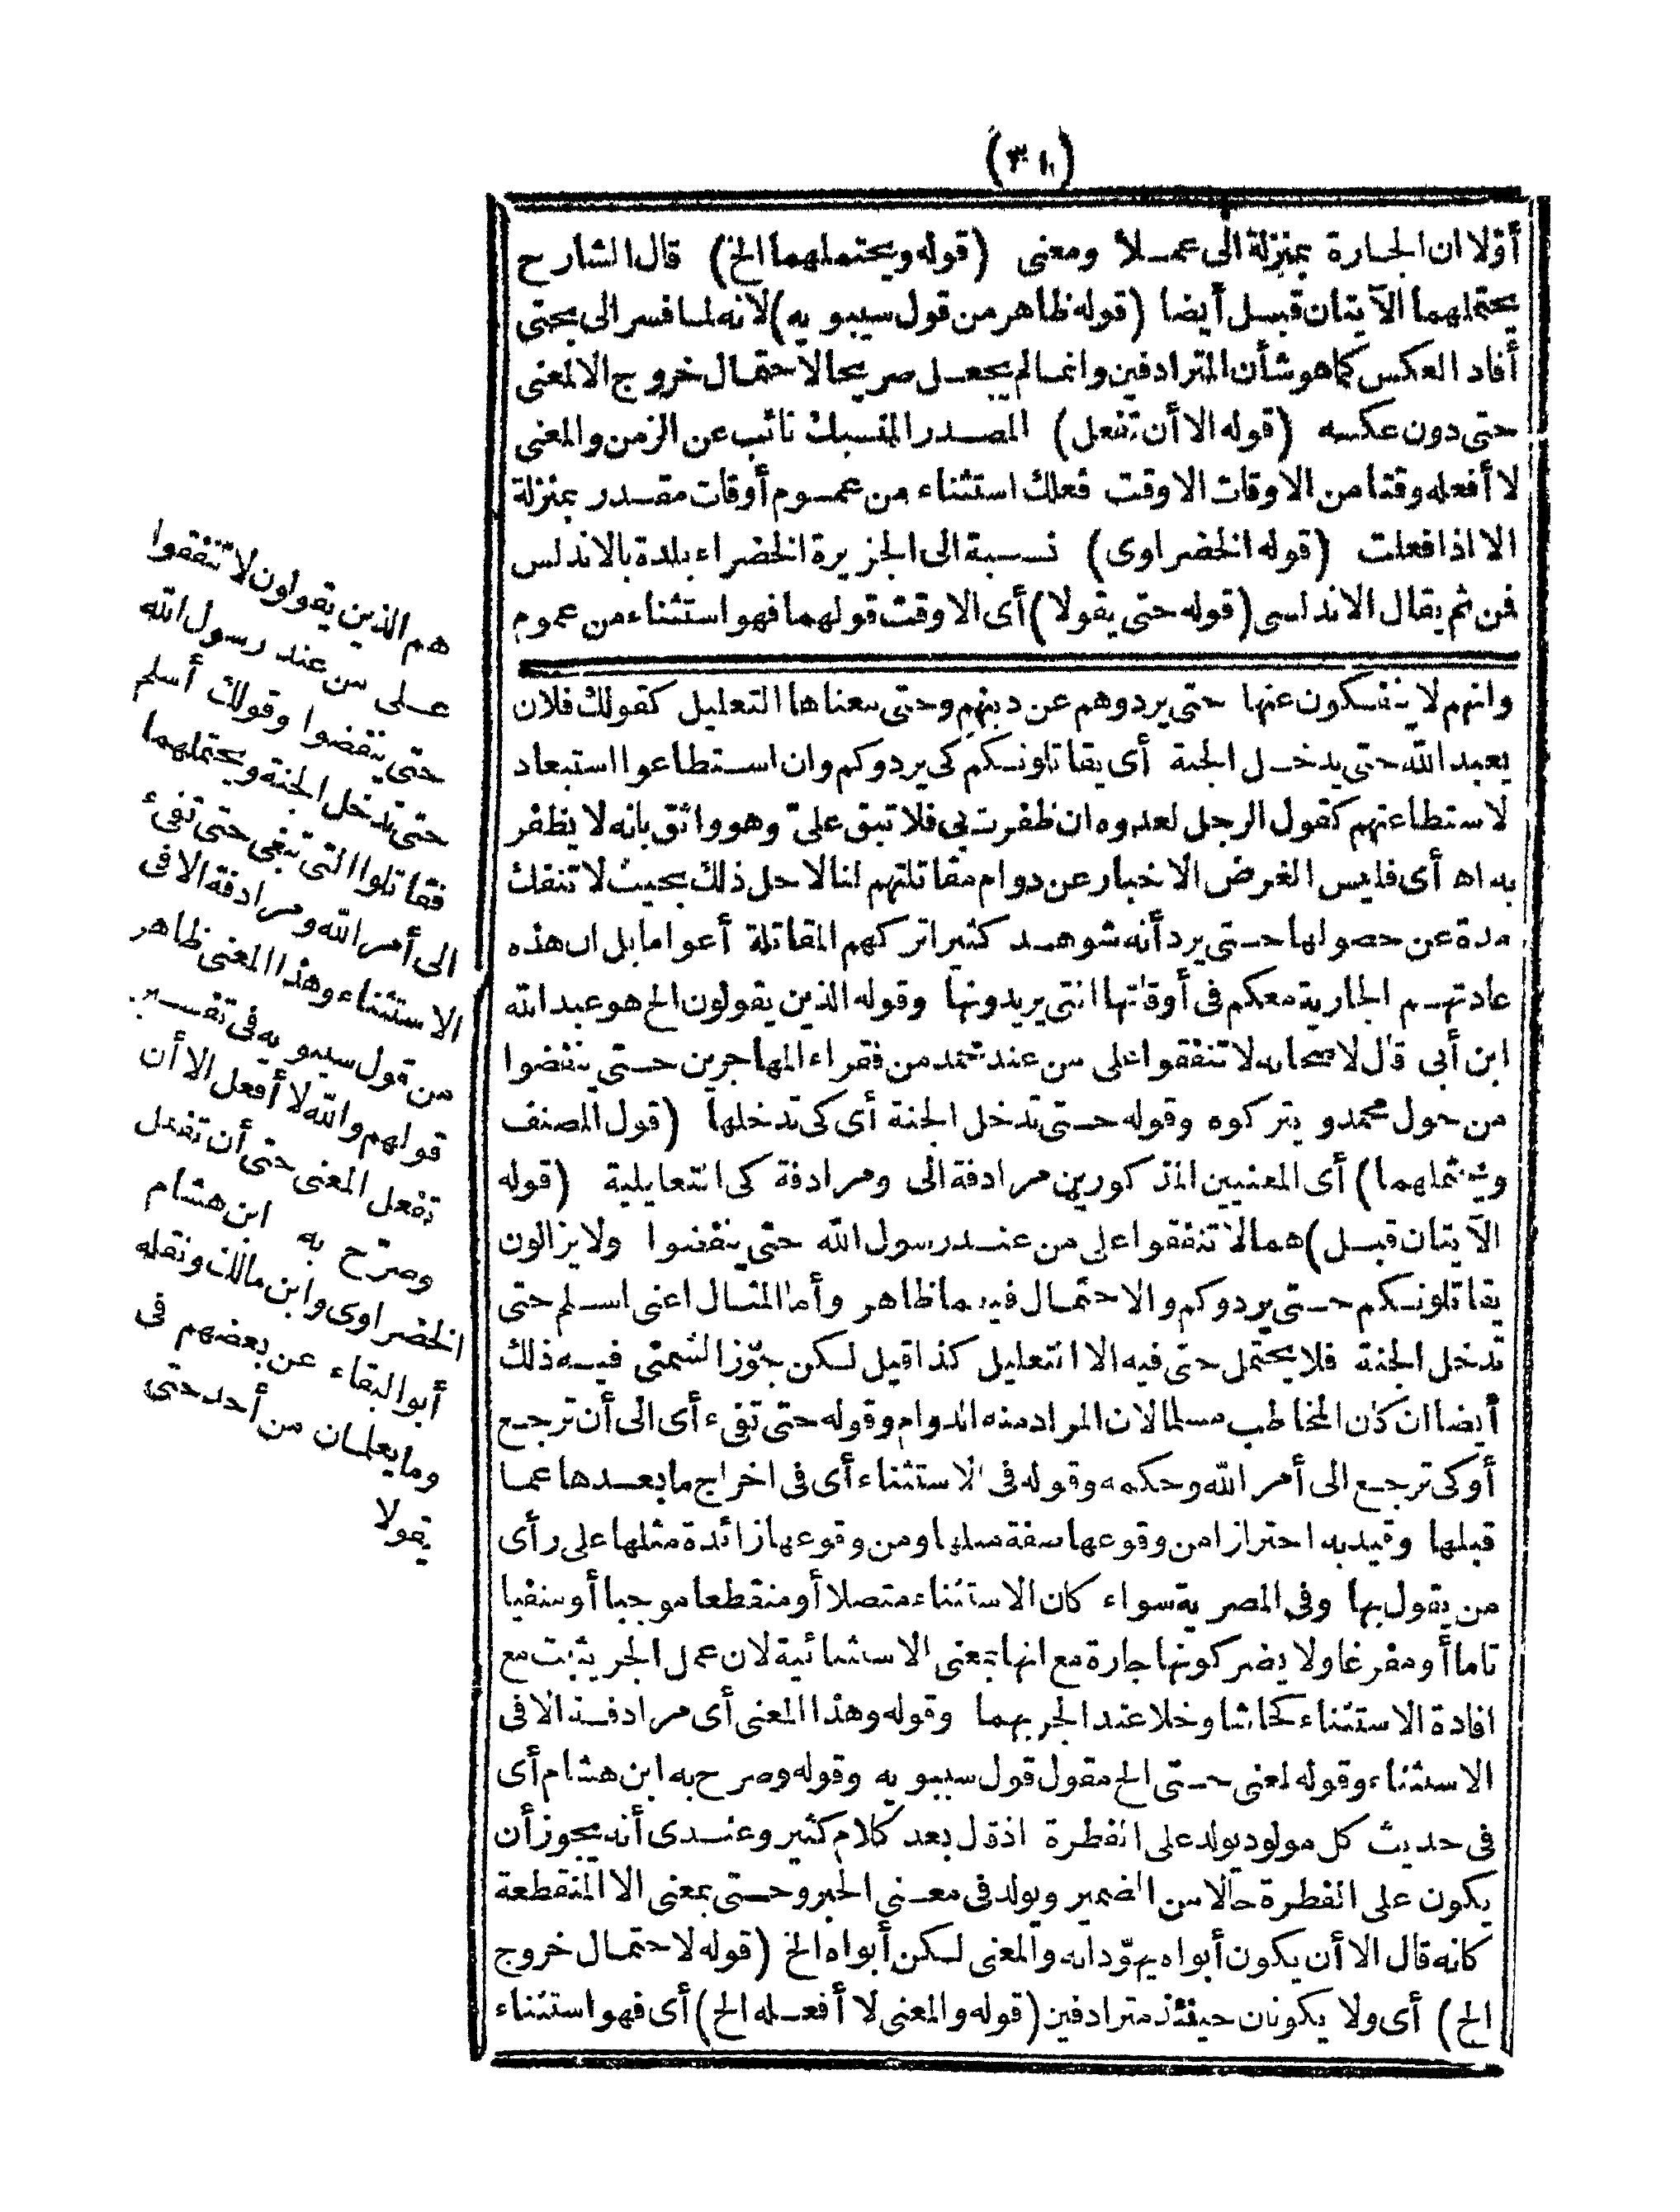 (٣١٠)
أوّلا ان الجارة بمنزلة الى عملا ومعنى (قوله ويحتملهما الخ) قال الشارح
يحتملهما الآيتان قبل أيضا (قوله ظاهر من قول سيبويه) لانه لما فسر الى بحتى
أفاد العكس كما هو شأن المترادفين وانما لم يجعل صريحا لاحتمال خروج الا لمعنى
حتى دون عكسه (قوله الا أن تفعل) المصدر المنسبك نائب عن الزمن والمعنى
لا أفعله وقتا من الاوقات الا وقت فعلك استثناء من عموم أوقات مقدر بمنزلة
الا اذا فعلت (قوله الخضراوى) نسبة الى الجزيرة الخضراء بلدة بالاندلس
فمن ثم يقال الاندلسى (قوله حتى يقولا) أى الا وقت قولهما فهو استثناء من عموم
وانهم لا ينفكون عنها حتى يردوهم عن دينهم وحتى معناها التعليل كقولك فلان
يعبد الله حتى يدخل الجنة أى يقاتلونكم كى يردوكم وان استطاعوا استبعاد
لاستطاعتهم كقول الرجل لعدوه ان ظفرت بى فلا تبق علىّ وهو واثق بانه لا يظفر
به اه أى فليس الغرض الاخبار عن دوام مقاتلتهم لنا لاجل ذلك بحيث لا تنفك
مدة عن حصولها حتى يرد أنه شوهد كثيرا تركهم المقاتلة أعواما بل ان هذه
عادتهم الجارية معكم فى أوقاتها التى يريدونها وقوله الذين يقولون الخ هو عبد الله
ابن أبى قال لاصحابه لا تنفقوا على من عند محمد من فقراء المهاجرين حتى ينفضوا
من حول محمد ويتركوه وقوله حتى تدخل الجنة أى كى تدخلها (قول المصنف
ويحتملهما) أى المعنيين المذكورين مرادفة الى ومرادفة كى التعليلية (قوله
الآيتان قبل) هما لا تنفقوا على من عند رسول الله حتى ينفضوا ولا يزالون
يقاتلونكم حتى يردوكم والاحتمال فيهما ظاهر وأما المثال اعنى اسلم حتى
تدخل الجنة فلا يحتمل حتى فيه الا التعليل كذا قيل لكن جوّز الشمنى فيه ذلك
أيضا ان كان المخاطب مسلما لان المراد منه الدوام وقوله حتى تفىء أى الى أن ترجع
أو كى ترجع الى أمر الله وحكمه وقوله فى الاستثناء أى فى اخراج ما بعدها عما
قبلها وقيد به احترازا من وقوعها صفة مثلها ومن وقوعها زائدة مثلها على رأى
من يقول بها وفى المصرية سواء كان الاستثناء متصلا أو منقطعا موجبا أو منفيا
تاما أو مفرغا ولا يضر كونها جارة مع انها بمعنى الاستثنائية لان عمل الجر يثبت مع
افادة الاستثناء كحاشا وخلا عند الجر بهما وقوله وهذا المعنى أى مرادفة الا فى
الاستثناء وقوله لمعنى حتى الخ مقول قول سيبويه وقوله وصرح به ابن هشام أى
فى حديث كل مولود يولد على الفطرة اذ قال بعد كلام كثير وعندى أنه يجوز أن
يكون على الفطرة حالا من الضمير ويولد فى معنى الخبر وحتى بمعنى الا المنقطعة
كانه قال الا أن يكون أبواه يهوّدانه والمعنى لكن أبواه الخ (قوله لاحتمال خروج
الخ) أى ولا يكونان حينئذ مترادفين (قوله والمعنى لا أفعله الخ) أى فهو استثناء
هم الذين يقولون لا تنفقوا
على من عند رسول الله
حتى ينفضوا وقولك أسلم
حتى تدخل الجنة ويحتملهما
فقاتلوا التى تبغى حتى تفىء
الى أمر الله ومرادفة الا فى
الاستثناء وهذا المعنى ظاهر
من قول سيبويه فى تفسير
قولهم والله لا أفعل الا أن
تفعل المعنى حتى أن تفعل
وصرّح به ابن هشام
الخضراوى وابن مالك ونقله
أبو البقاء عن بعضهم فى
وما يعلمان من أحد حتى
يقولا